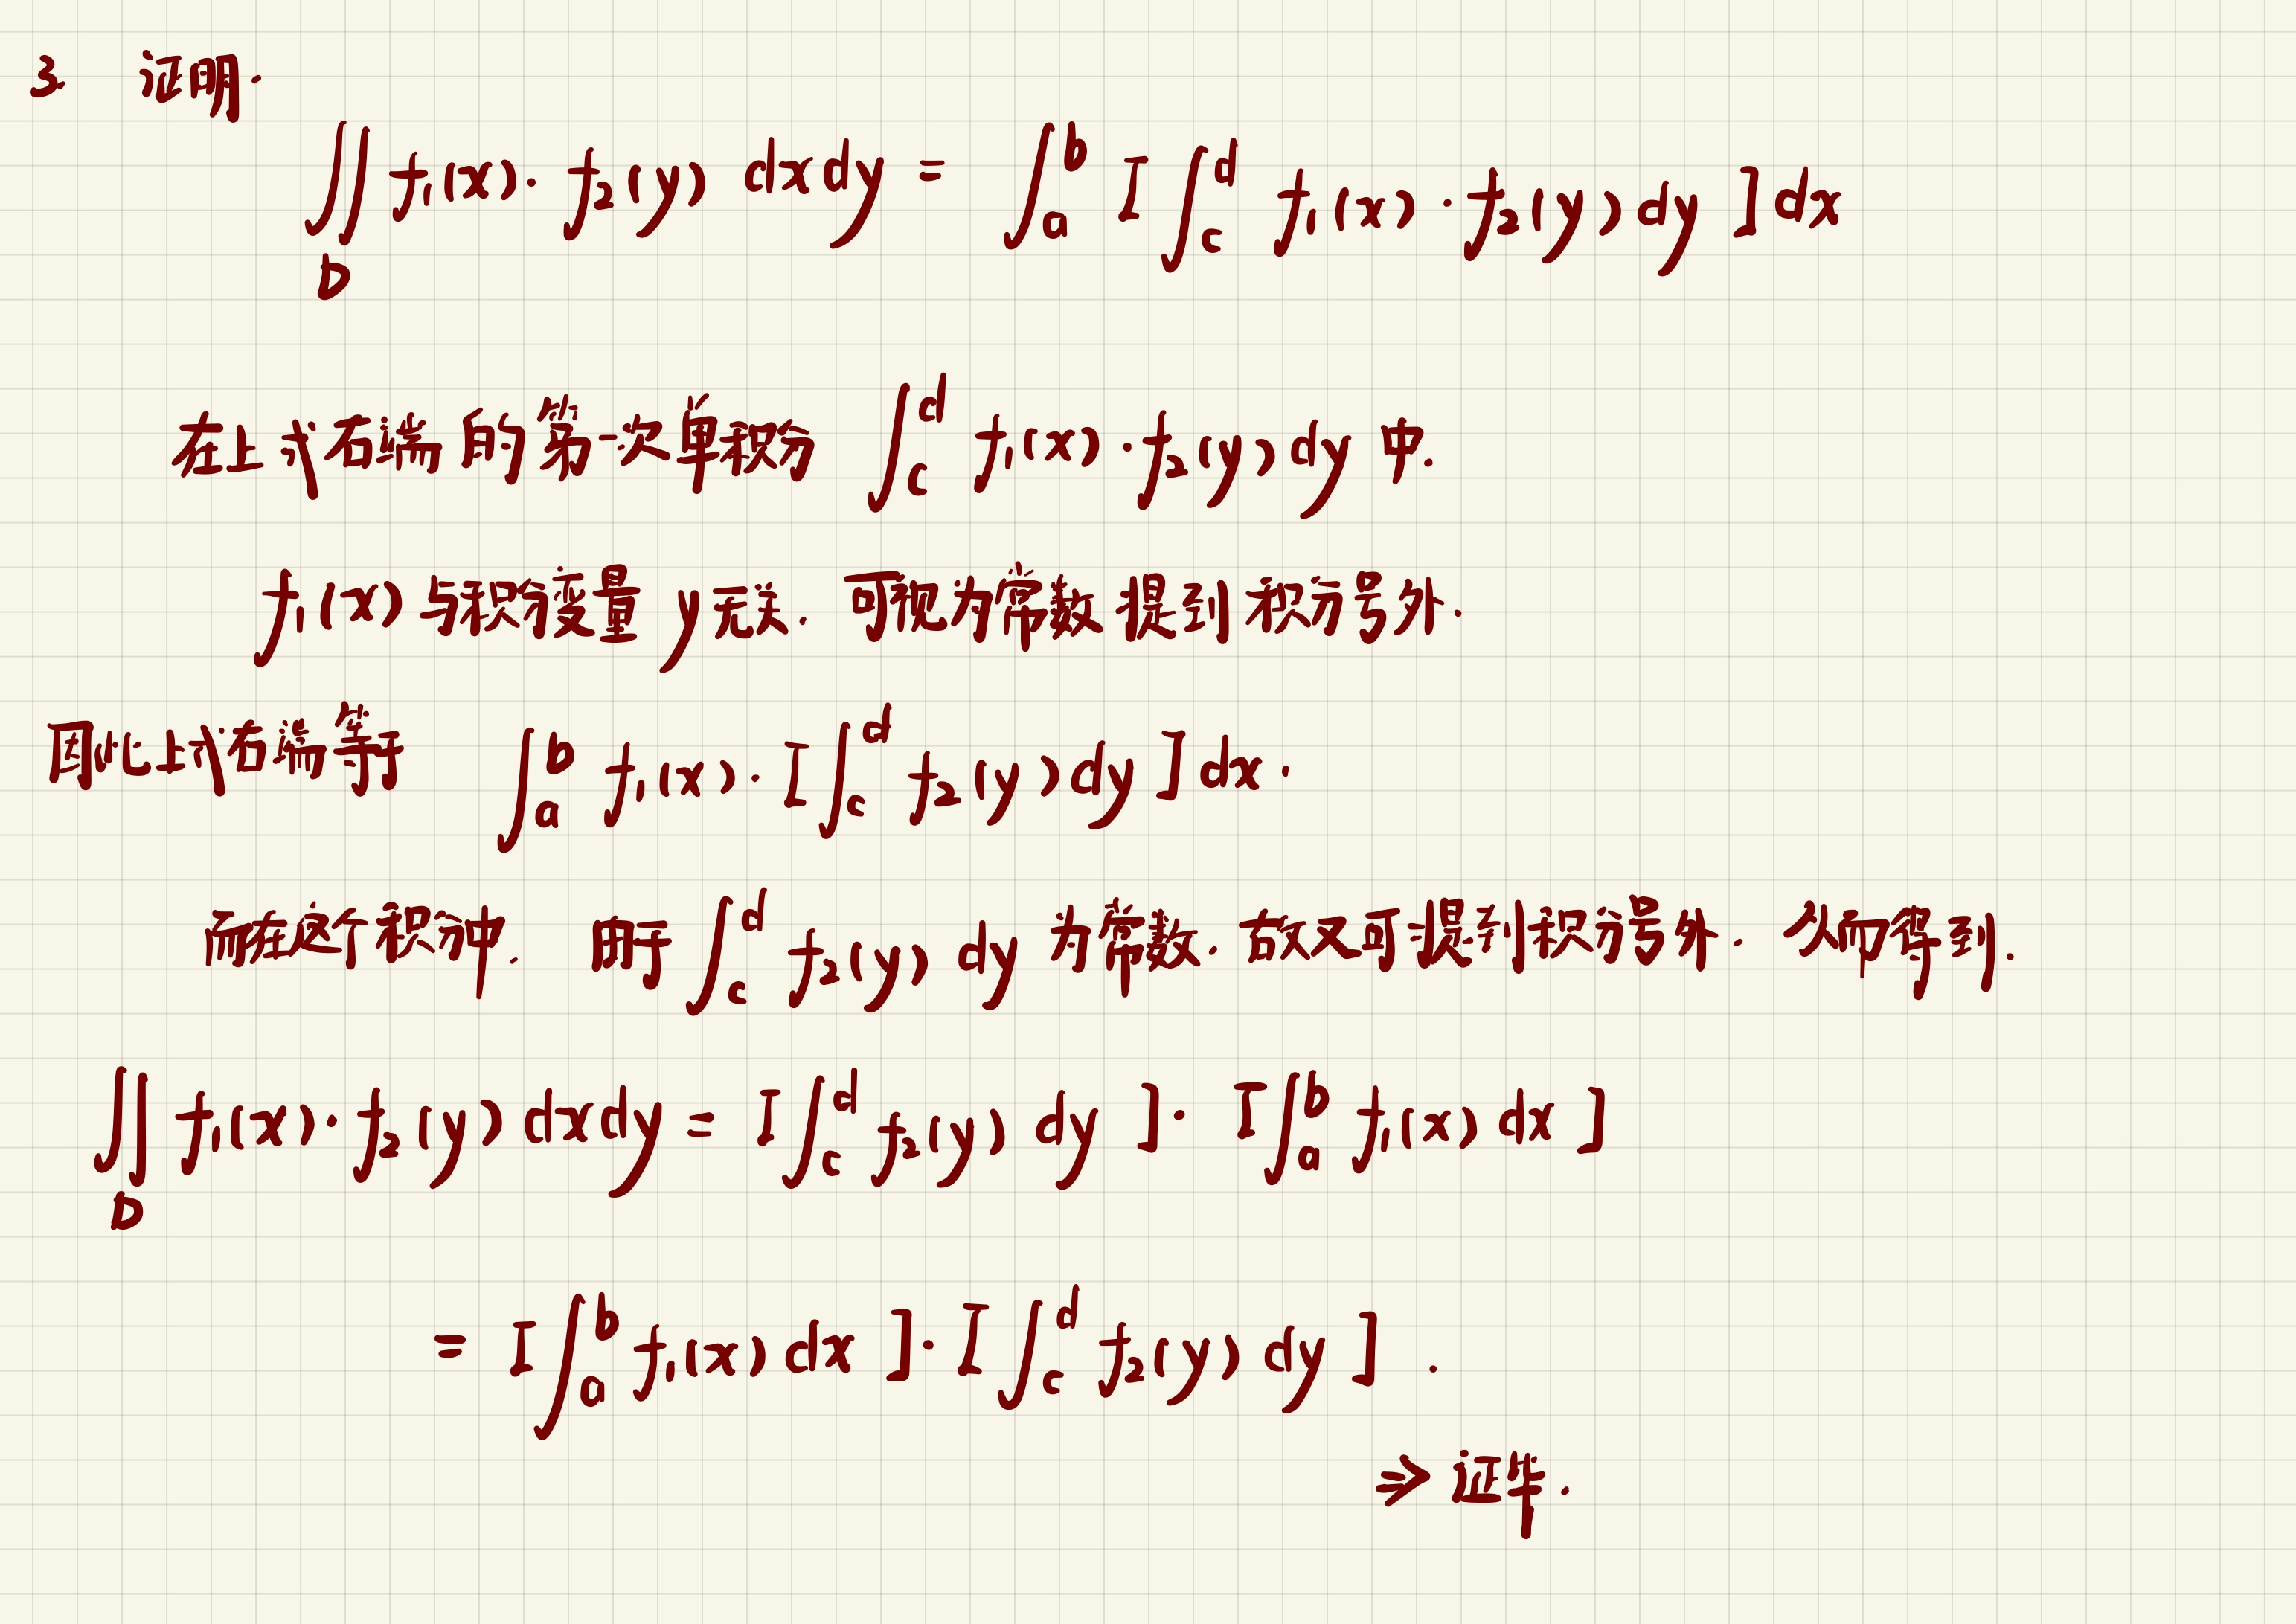 3. 证明.
∬_D f₁(x)·f₂(y) dxdy = ∫_a^b [∫_c^d f₁(x)·f₂(y)dy]dx
在上式右端的第一次单积分 ∫_c^d f₁(x)·f₂(y)dy 中.
f₁(x)与积分变量y无关. 可视为常数提到积分号外.
因此上式右端等于 ∫_a^b f₁(x)·[∫_c^d f₂(y)dy]dx.
而在这个积分中. 由于 ∫_c^d f₂(y) dy 为常数. 故又可提到积分号外. 从而得到.
∬_D f₁(x)·f₂(y)dxdy = [∫_c^d f₂(y) dy]·[∫_a^b f₁(x) dx]
= [∫_a^b f₁(x)dx]·[∫_c^d f₂(y) dy].
⇒ 证毕.